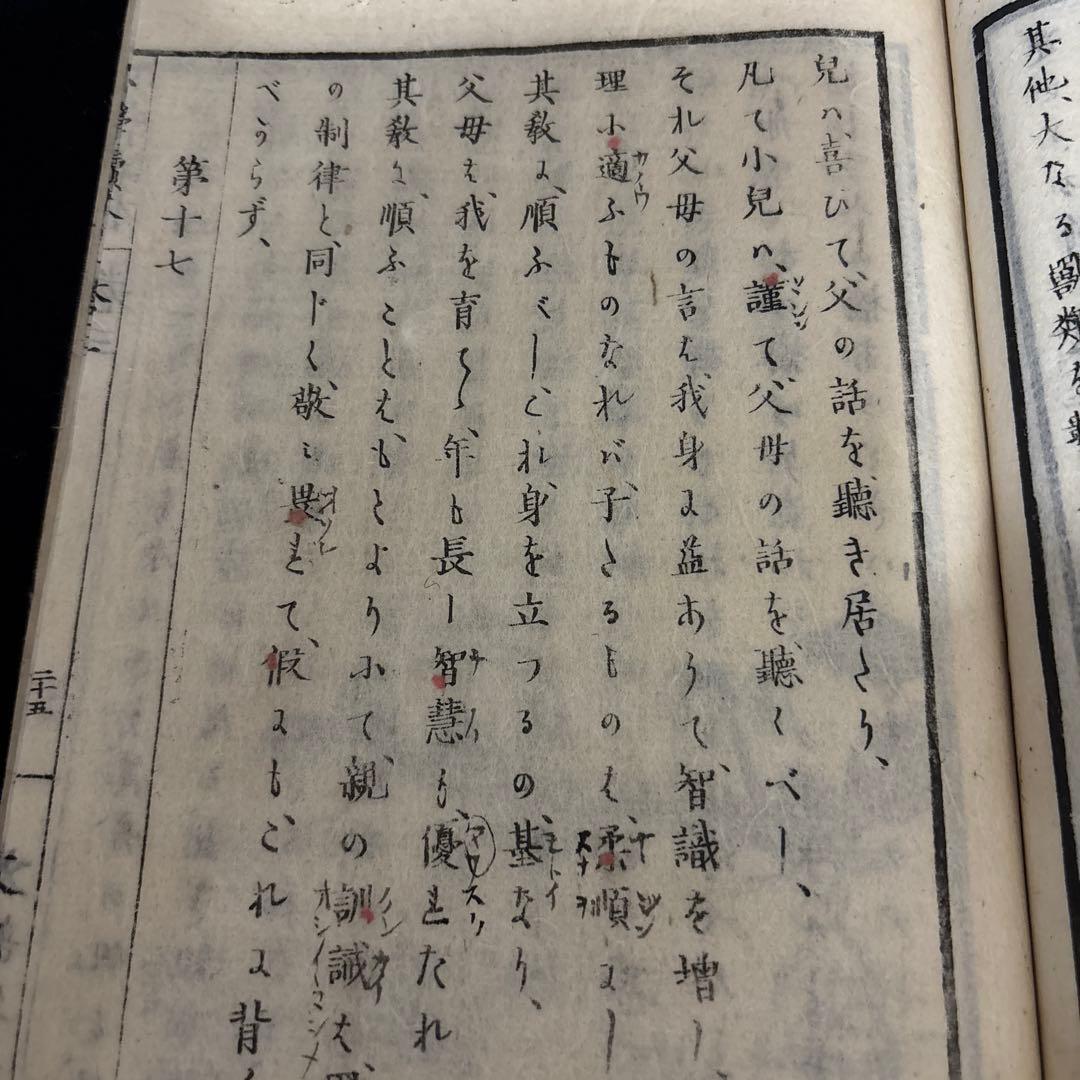 其他、大なる獸類を
兒ハ、喜びて、父の話を、聽き居たり、
凡て小兒ハ、謹て父母の話を、聽くべし、
それ父母の言は、我身に益ありて、智識を増し、
理に適ふものなれバ、子たるものは、柔順にし
其教に、順ふべし、これ、身を立つるの基なり、
父母は、我を育てゝ、年も長し智慧も、優れたれ
其教に、順ふことは、もとよりにて、親の訓誡は、
の制律と、同じく、敬ミ畏れて、假にも、これに背く
べからず、
第十七
二十五